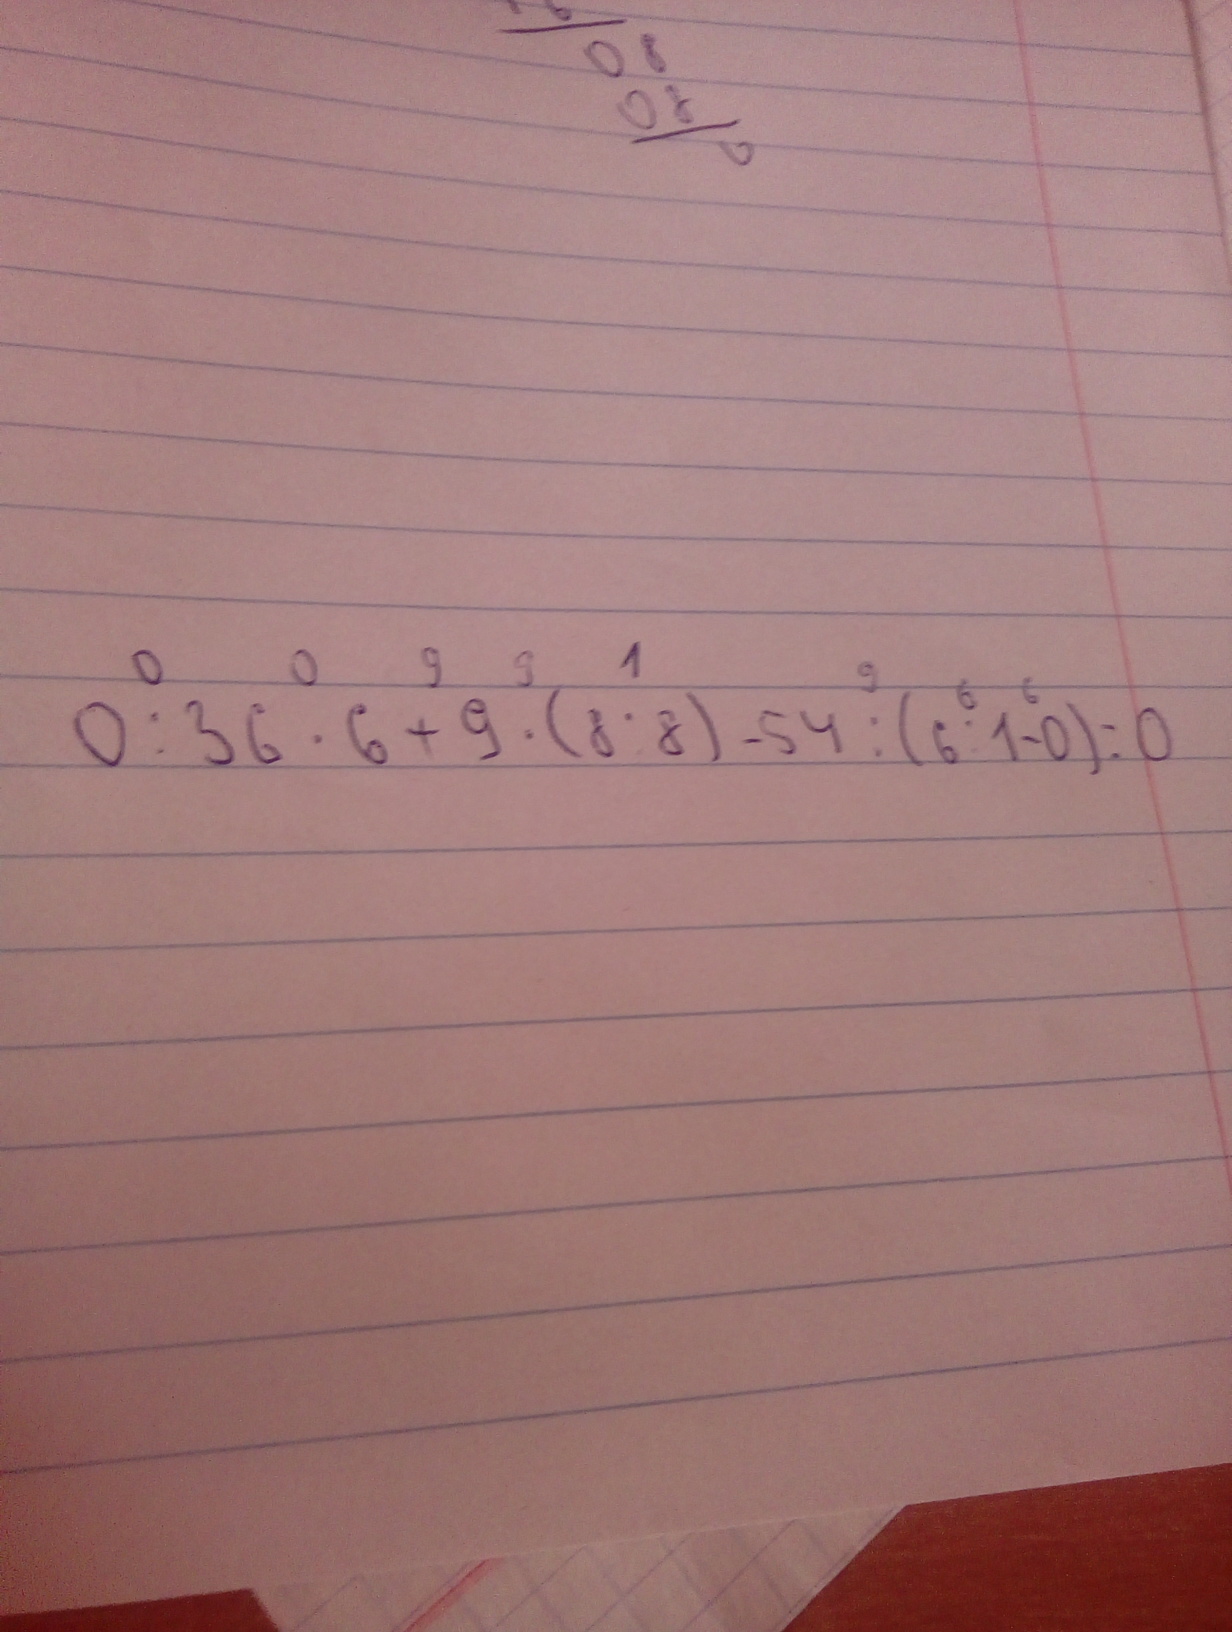 08
08
0
0 0 9 9 1 9 6 6
0:36·6+9·(8:8)-54:(6:1-0)=0